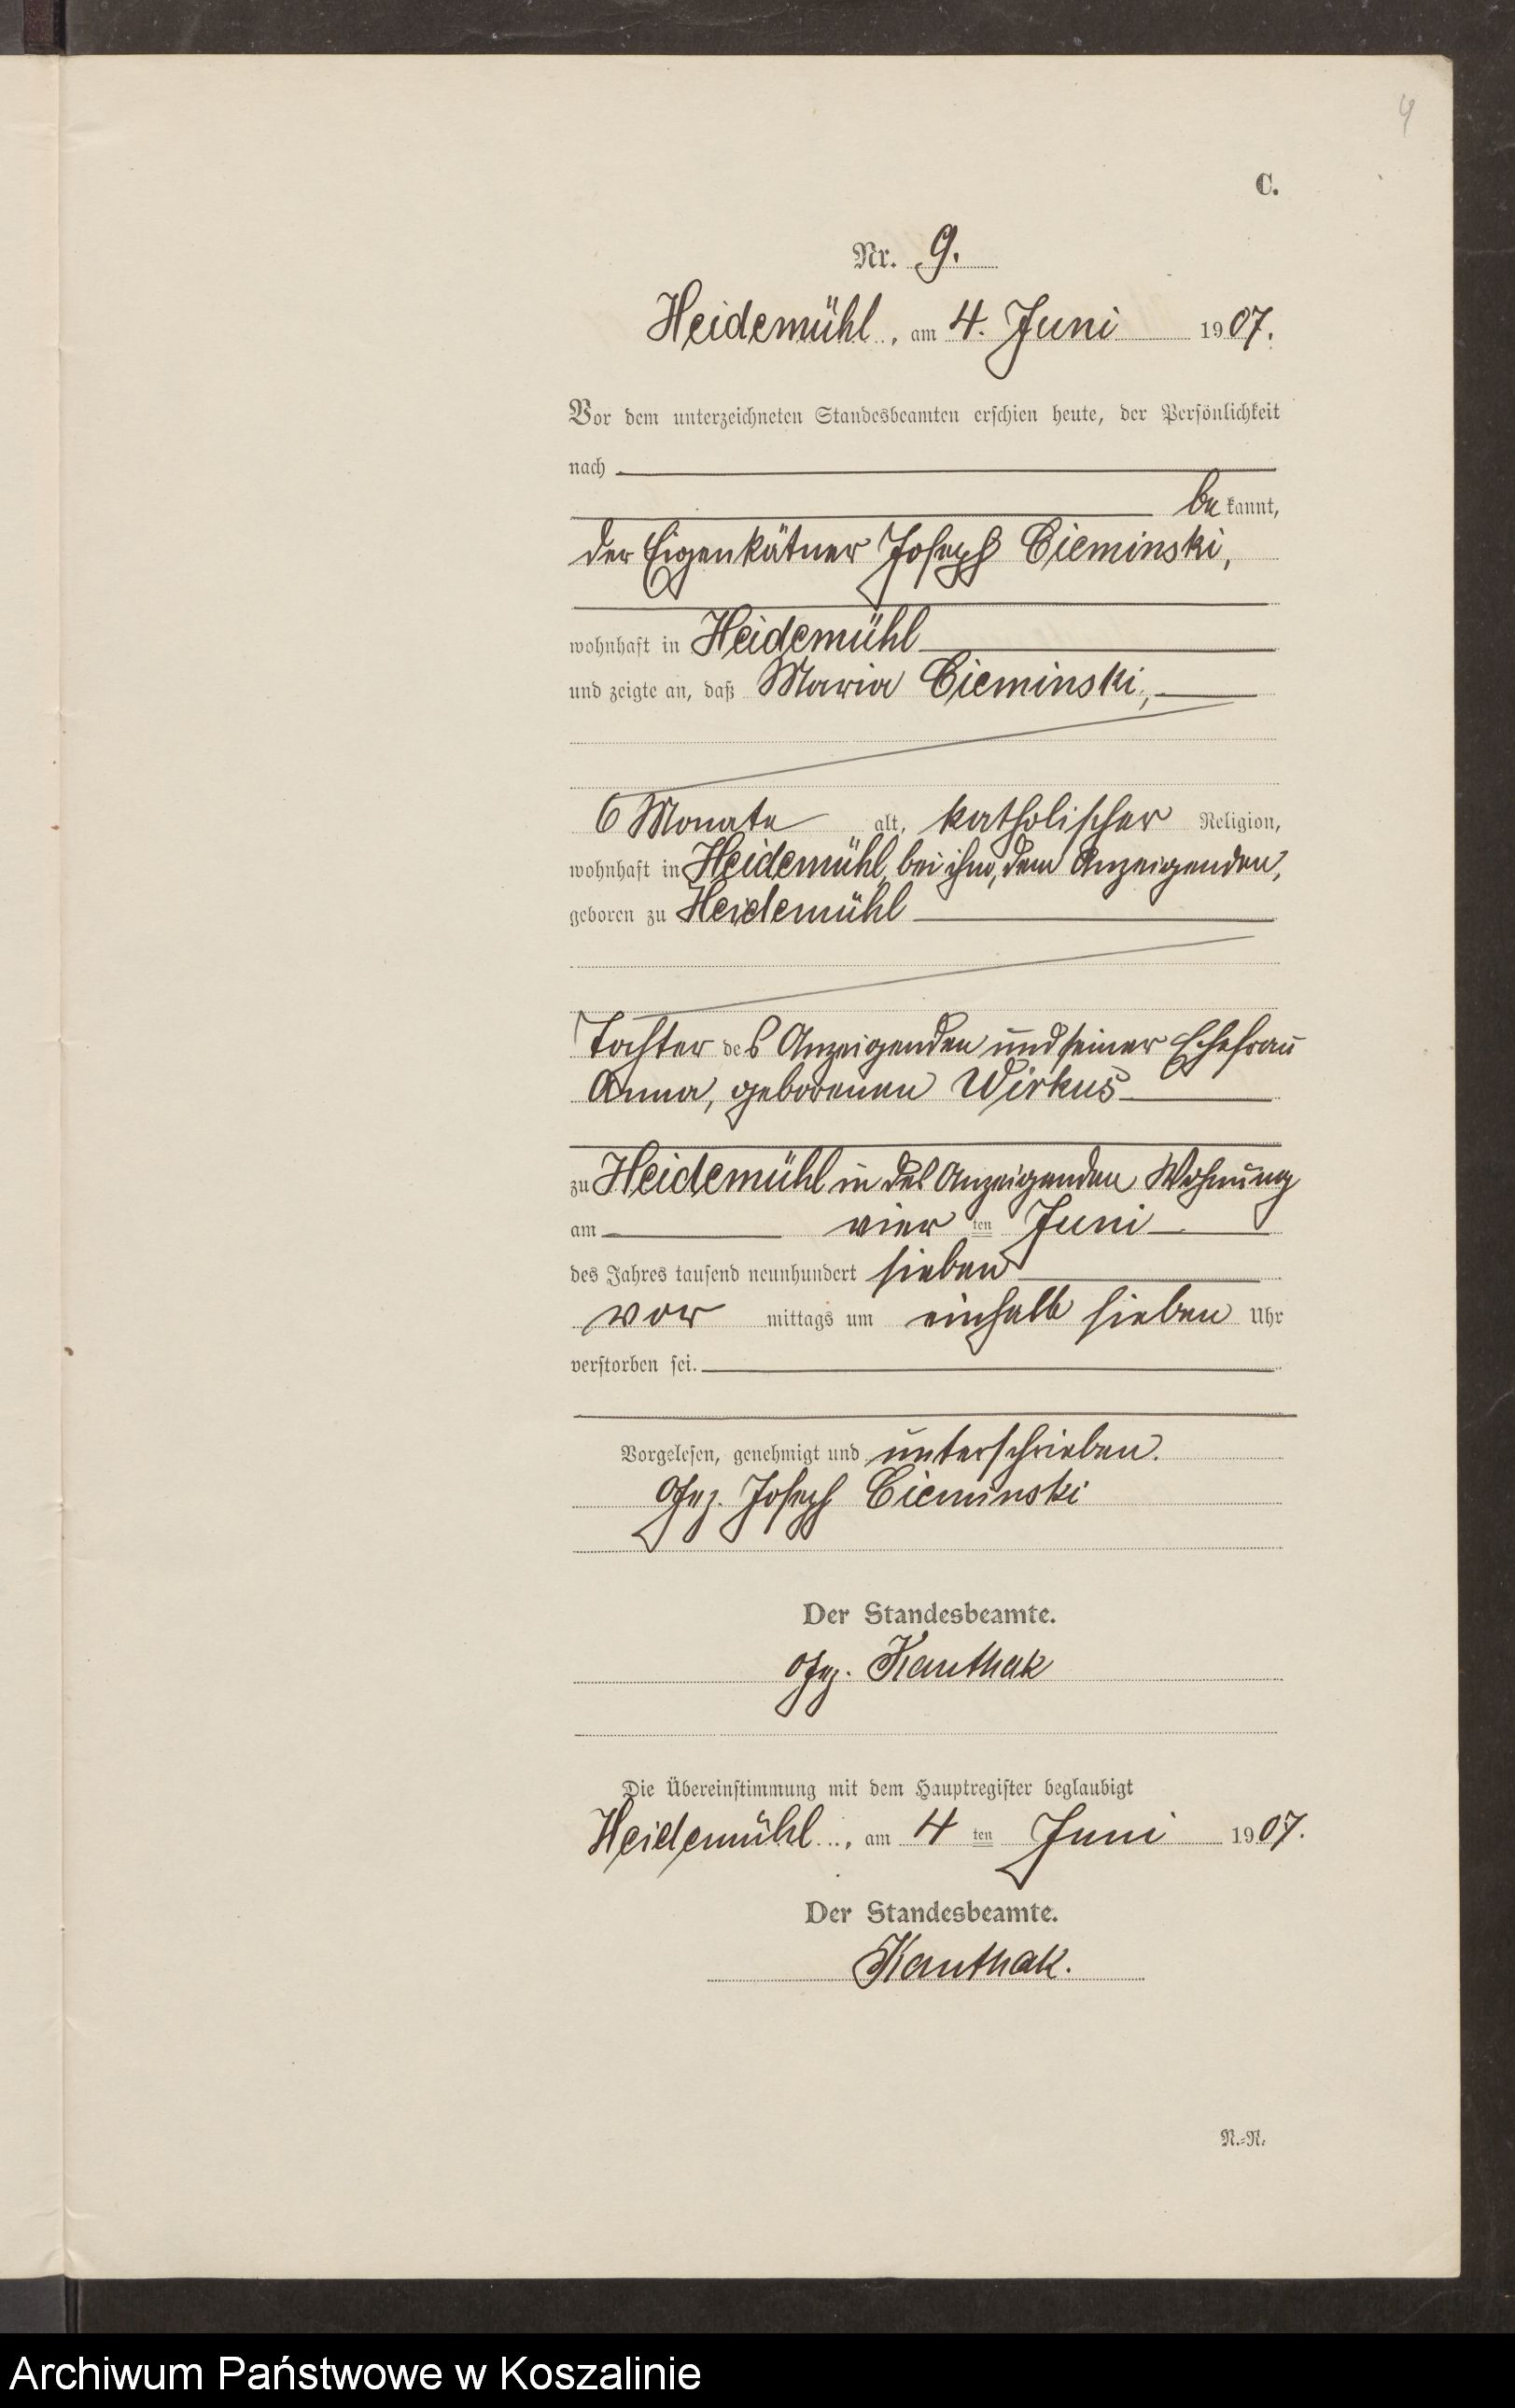 4
C.
Nr. 9.
Heidemühl, am 4. Juni 1907.
Vor dem unterzeichneten Standesbeamten erschien heute, der Persönlichkeit
nach
be kannt,
der Eigenkätner Joseph Cieminski,
wohnhaft in Heidemühl
und zeigte an, daß Maria Cieminski,
6 Monate alt, katholischer Religion,
wohnhaft in Heidemühl, bei ihm, dem Anzeigenden,
geboren zu Heidemühl
Tochter des Anzeigenden und seiner Ehefrau
Anna, geborenen Wirkus
zu Heidemühl in des Anzeigenden Wohnung
am vier ten Juni
des Jahres tausend neunhundert sieben
vor mittags um einhalb sieben Uhr
verstorben sei.
Vorgelesen, genehmigt und unterschrieben.
Gez. Joseph Cieminski
Der Standesbeamte.
Gez. Kauthak
Die Übereinstimmung mit dem Hauptregister beglaubigt
Heidemühl, am 4 ten Juni 1907.
Der Standesbeamte.
Kauthak.
N.-R.
Archiwum Państwowe w Koszalinie